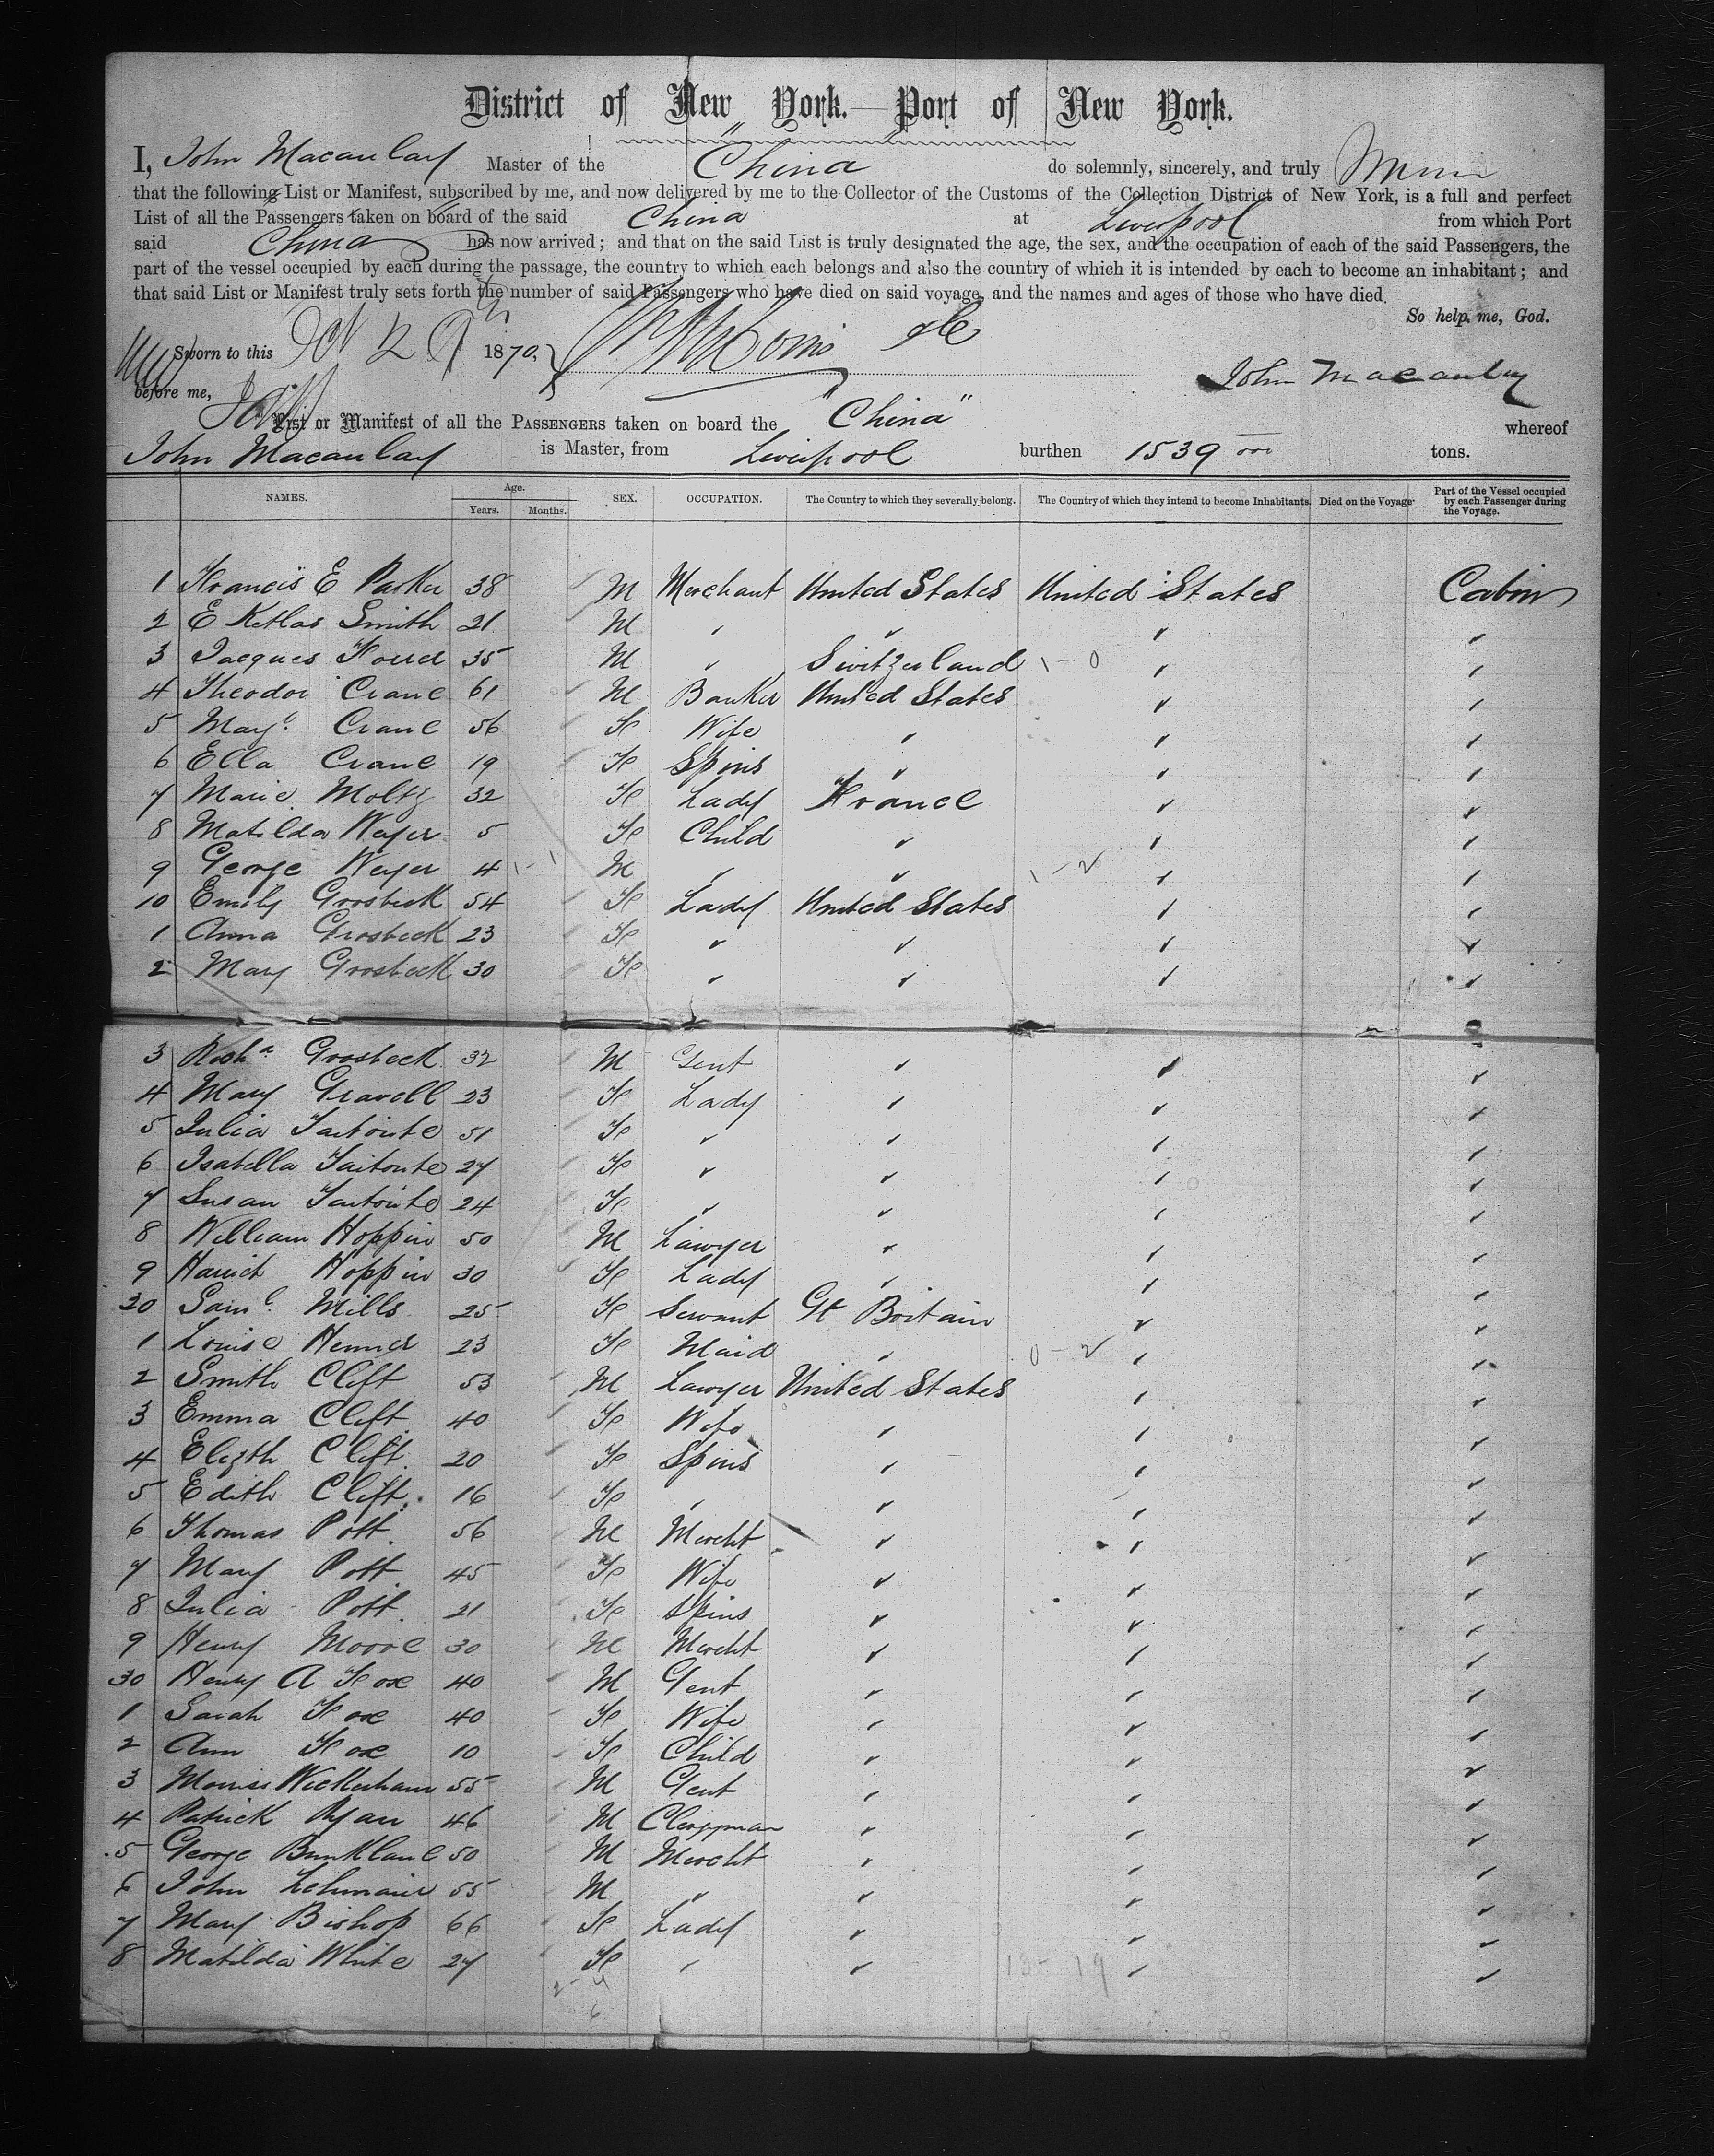 District of New York.—Port of New York.
I, John Macaulay Master of the "China" do solemnly, sincerely, and truly
that the following List or Manifest, subscribed by me, and now delivered by me to the Collector of the Customs of the Collection District of New York, is a full and perfect
List of all the Passengers taken on board of the said China at Liverpool from which Port
said China has now arrived; and that on the said List is truly designated the age, the sex, and the occupation of each of the said Passengers, the
part of the vessel occupied by each during the passage, the country to which each belongs and also the country of which it is intended by each to become an inhabitant; and
that said List or Manifest truly sets forth the number of said Passengers who have died on said voyage, and the names and ages of those who have died.
So help me, God.
Sworn to this Oct 29th 1870,
John Macaulay
before me,
List or Manifest of all the PASSENGERS taken on board the "China" whereof
John Macaulay is Master, from Liverpool burthen 1539 tons.
NAMES. Age. Years. Months. SEX. OCCUPATION. The Country to which they severally belong. The Country of which they intend to become Inhabitants. Died on the Voyage. Part of the Vessel occupied by each Passenger during the Voyage.
1 Francis E Parker 38 M Merchant United States United States Cabin
2 E Ketlas Smith 21 M " " " "
3 Jacques 35 M " Switzerland 1-0 " "
4 Theodor Crane 61 M Banker United States " "
5 Mary Crane 56 F Wife " " "
6 Ella Crane 19 F Spins " " "
7 Marie Moltz 32 F Lady France " "
8 Matilda Weyer 5 F Child " " "
9 George Weyer 4 1-1 M " " 1-2 " "
10 Emily Grosbeck 54 F Lady United States " "
1 Anna Grosbeck 23 F " " " "
2 Mary Grosbeck 30 F " " " "
3 Grosbeck 32 M Gent " " "
4 Mary Gravell 23 F Lady " " "
5 Julia Faitoute 51 F " " " "
6 Isabella Faitoute 27 F " " " "
7 Susan Faitoute 24 F " " " "
8 William Hoppin 50 M Lawyer " " "
9 Harriet Hoppin 30 F Lady " " "
20 Saml. Mills 25 F Servant Gt Britain " "
1 Louise 23 F Maid " 0-2 " "
2 Smith Clift 53 M Lawyer United States " "
3 Emma Clift 40 F Wife " " "
4 Elizth Clift 20 F Spins " " "
5 Edith Clift 16 F " " " "
6 Thomas Pott 56 M Mercht " " "
7 Mary Pott 45 F Wife " " "
8 Julia Pott 21 F Spins " " "
9 Henry Moore 30 M Mercht " " "
30 Henry A Fox 40 M Gent " " "
1 Sarah Fox 40 F Wife " " "
2 Ann Fox 10 F Child " " "
3 Morris Wickersham 55 M Gent " " "
4 Patrick Ryan 46 M Clergyman " " "
5 George 50 M Mercht " " "
6 John Lehmaier 55 M " " " "
7 Mary Bishop 66 F Lady " " "
8 Matilda White 27 F " " " "
2-4 15-19
6